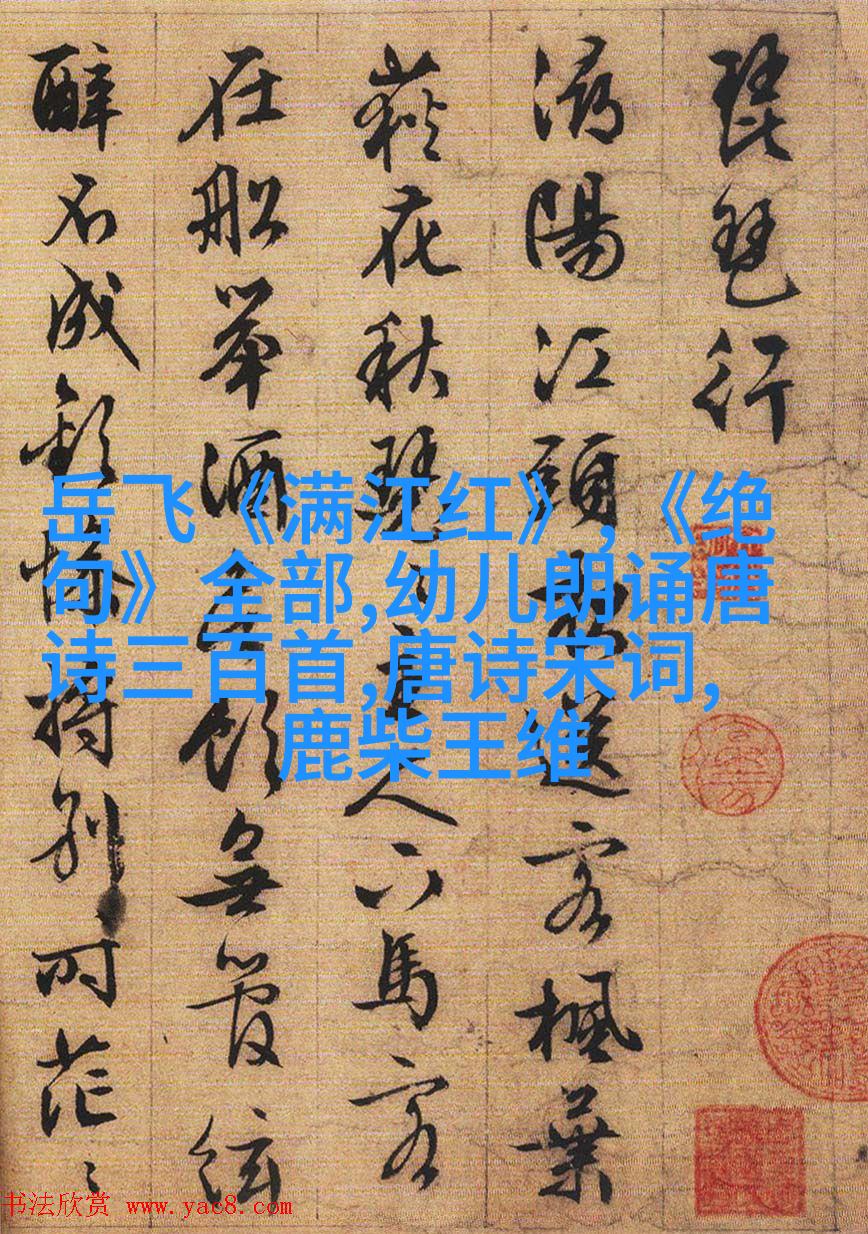 琵琶行
潯陽江頭夜送客楓葉
荻花秋瑟〻主人下馬客
在船舉酒欲飲無管絃
醉不成歡慘將別時茫〻
岳飞《满江红》,《绝
句》全部,幼儿朗诵唐
诗三百首,唐诗宋词,
鹿柴王维
书法欣赏 www.yac8.com